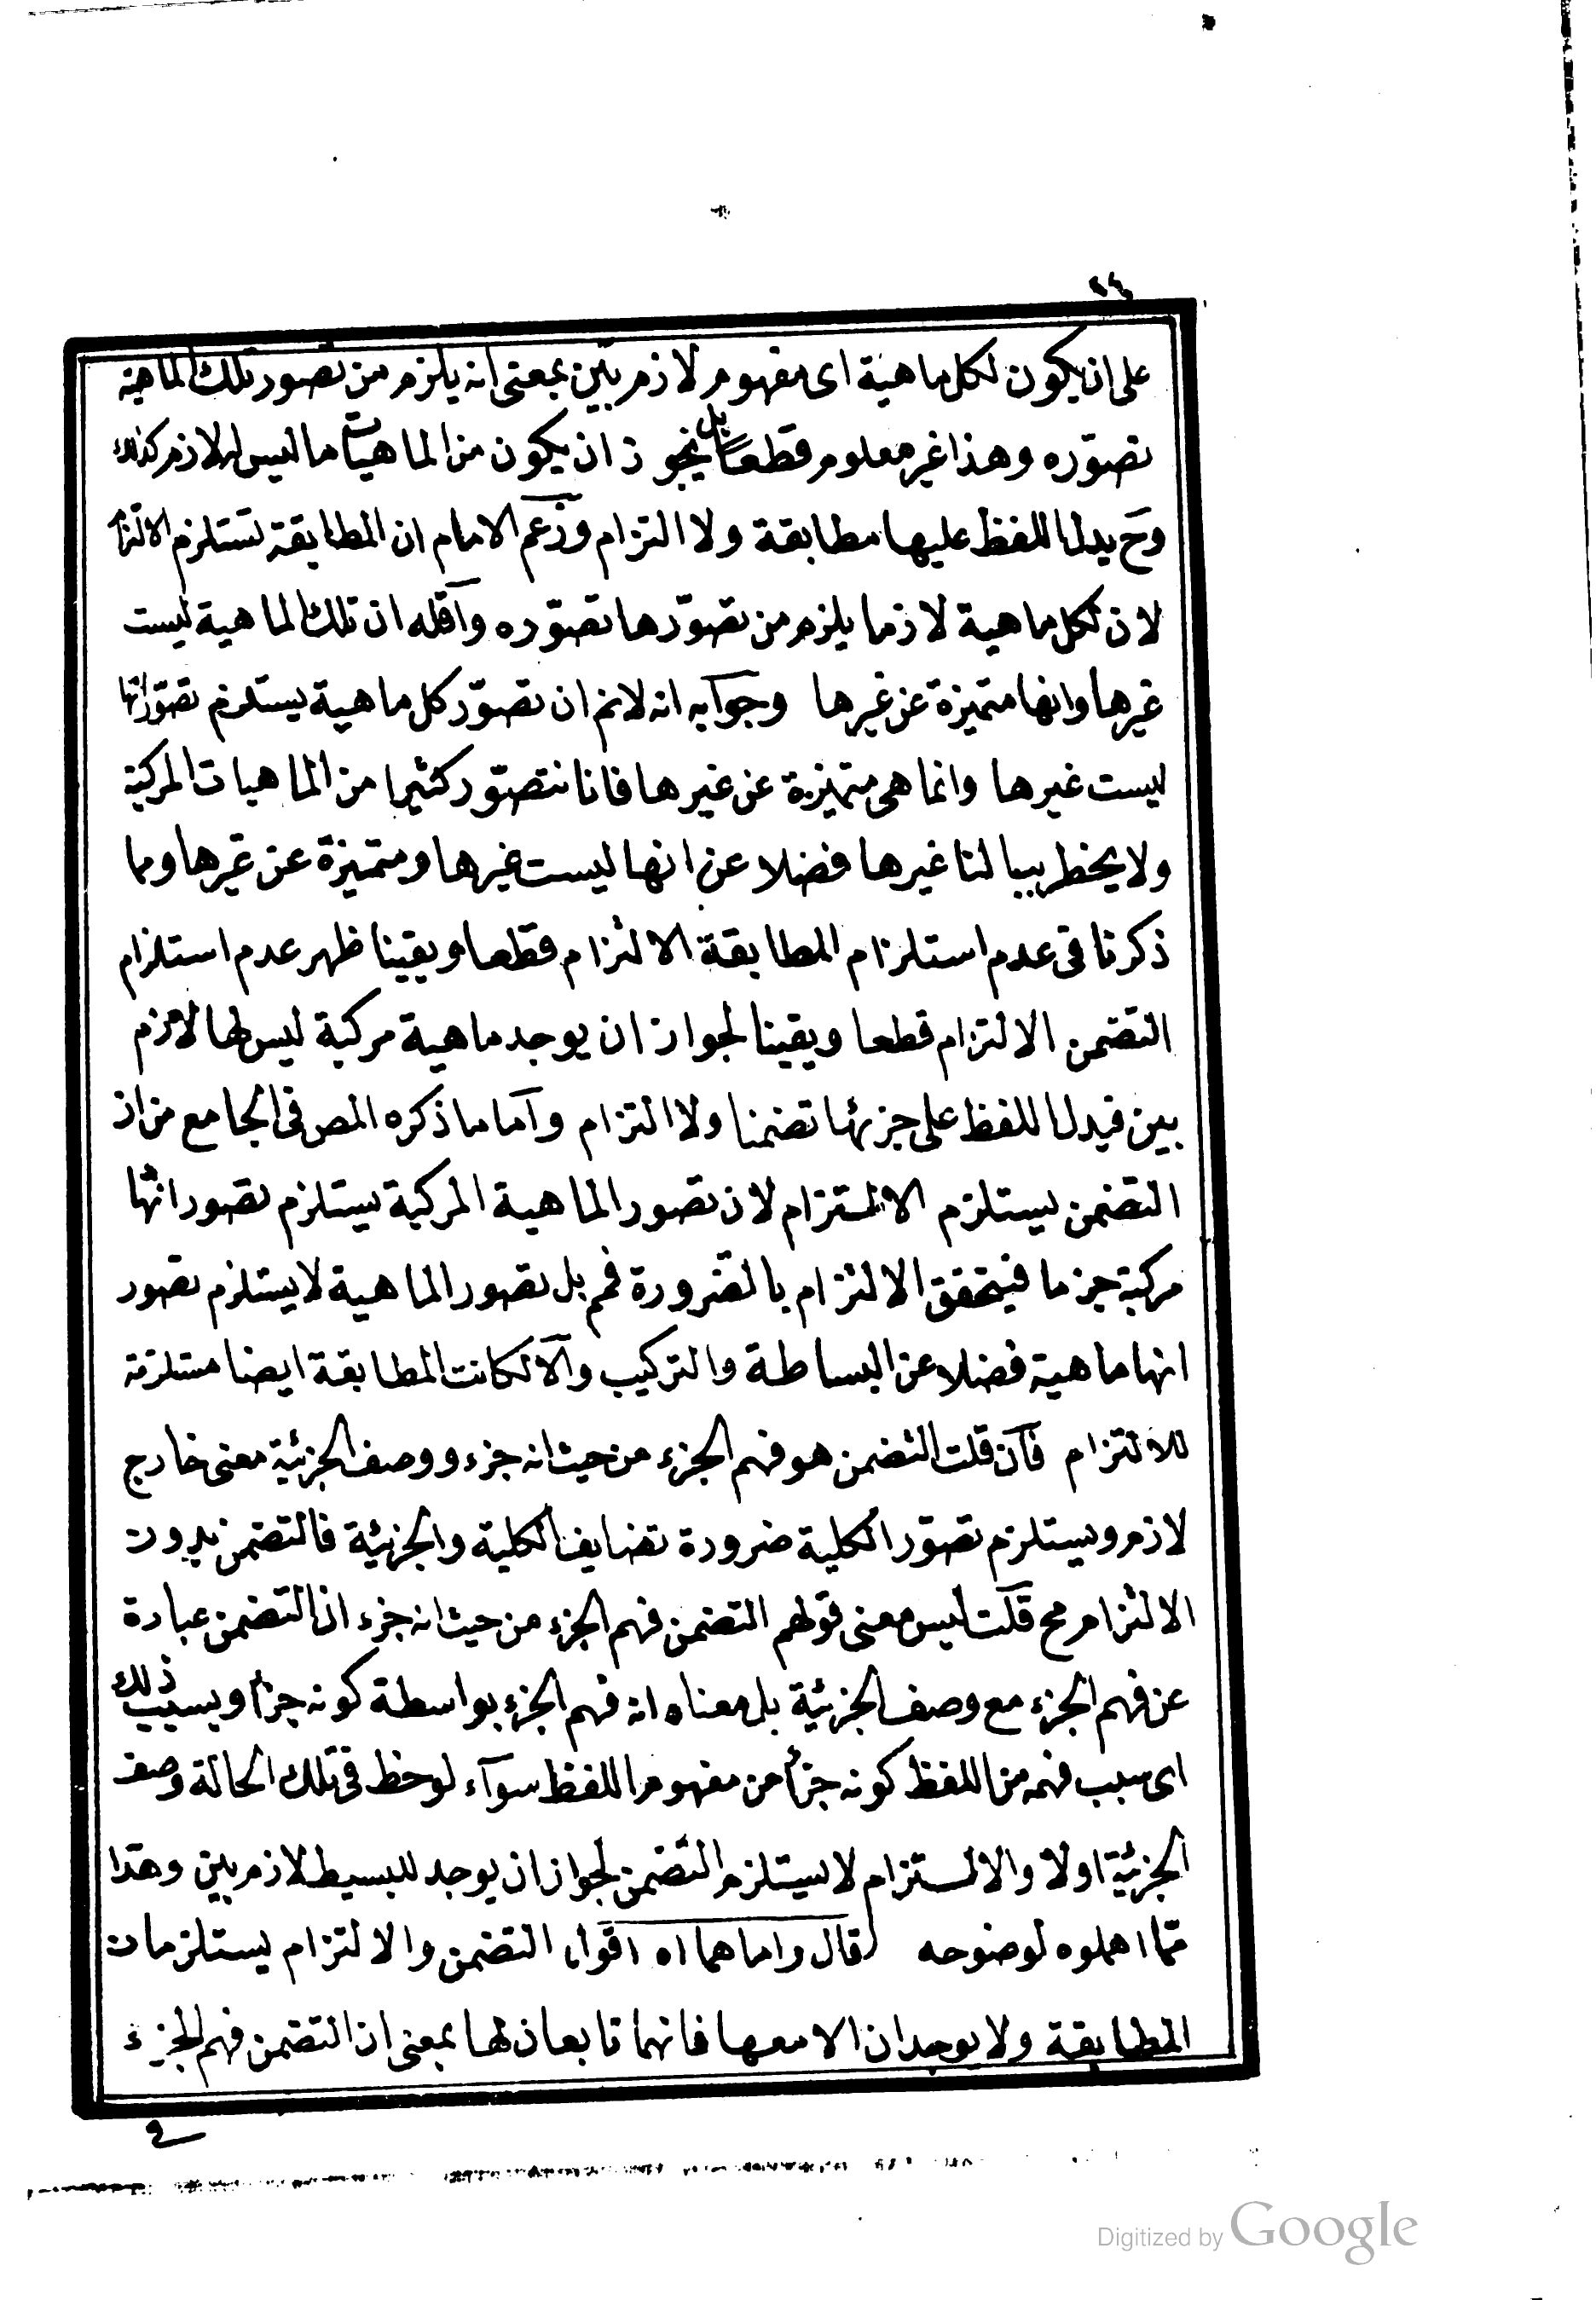 ٤٤
على ان يكون لكل ماهية اى مفهوم لازم بيّن بمعنى انه يلزم من تصور تلك الماهية
تصوّره وهذا غير معلوم قطعًا بل يجوز ان يكون من الماهيات ما ليس له لازم كذلك
وح يدل اللفظ عليها مطابقة ولا التزام وزعم الامام ان المطابقة تستلزم الالتزام
لان لكل ماهية لازما يلزم من تصوّرها تصوّره واقله ان تلك الماهية ليست
غيرها وانها متميزة عن غيرها وجوابه انه لانم ان تصوّر كل ماهية يستلزم تصوّر انها
ليست غيرها وانما هى متميزة عن غيرها فانا نتصوّر كثيرا من الماهيات المركبة
ولا يخطر ببالنا غيرها فضلا عن انها ليست غيرها ومتميزة عن غيرها وبما
ذكرنا فى عدم استلزام المطابقة الالتزام قطعا ويقينا ظهر عدم استلزام
التضمن الالتزام قطعا ويقينا لجواز ان يوجد ماهية مركبة ليس لها لازم
بين فيدل اللفظ على جزئها تضمنا ولا التزام واما ما ذكره المص فى الجامع من ان
التضمن يستلزم الالتزام لان تصور الماهية المركبة يستلزم تصور انها
مركبة جزما فيتحقق الالتزام بالضرورة فمم بل تصور الماهية لا يستلزم تصور
انها ماهية فضلا عن البساطة والتركيب والا لكانت المطابقة ايضا مستلزمة
للالتزام فان قلت التضمن هو فهم الجزء من حيث انه جزء ووصف الجزئية معنى خارج
لازم ويستلزم تصوّر الكلية ضرورة تضايف الكلية والجزئية فالتضمن بدون
الالتزام مح قلت ليس معنى قولهم التضمن فهم الجزء من حيث انه جزء ان التضمن عبارة
عن فهم الجزء مع وصف الجزئية بل معناه انه فهم الجزء بواسطة كونه جزأ وبسبب ذلك
اى سبب فهمه من اللفظ كونه جزأ من مفهوم اللفظ سوآء لوحظ فى تلك الحالة وصف
الجزئية اولا والالتزام لا يستلزم التضمن لجواز ان يوجد للبسيط لازم بين وهذا
مما اهملوه لوضوحه قال واما هما اه اقول التضمن والالتزام يستلزمان
المطابقة ولا يوجدان الا معها فانهما تابعان لها بمعنى ان التضمن فهم الجزء
فى
Digitized by Google